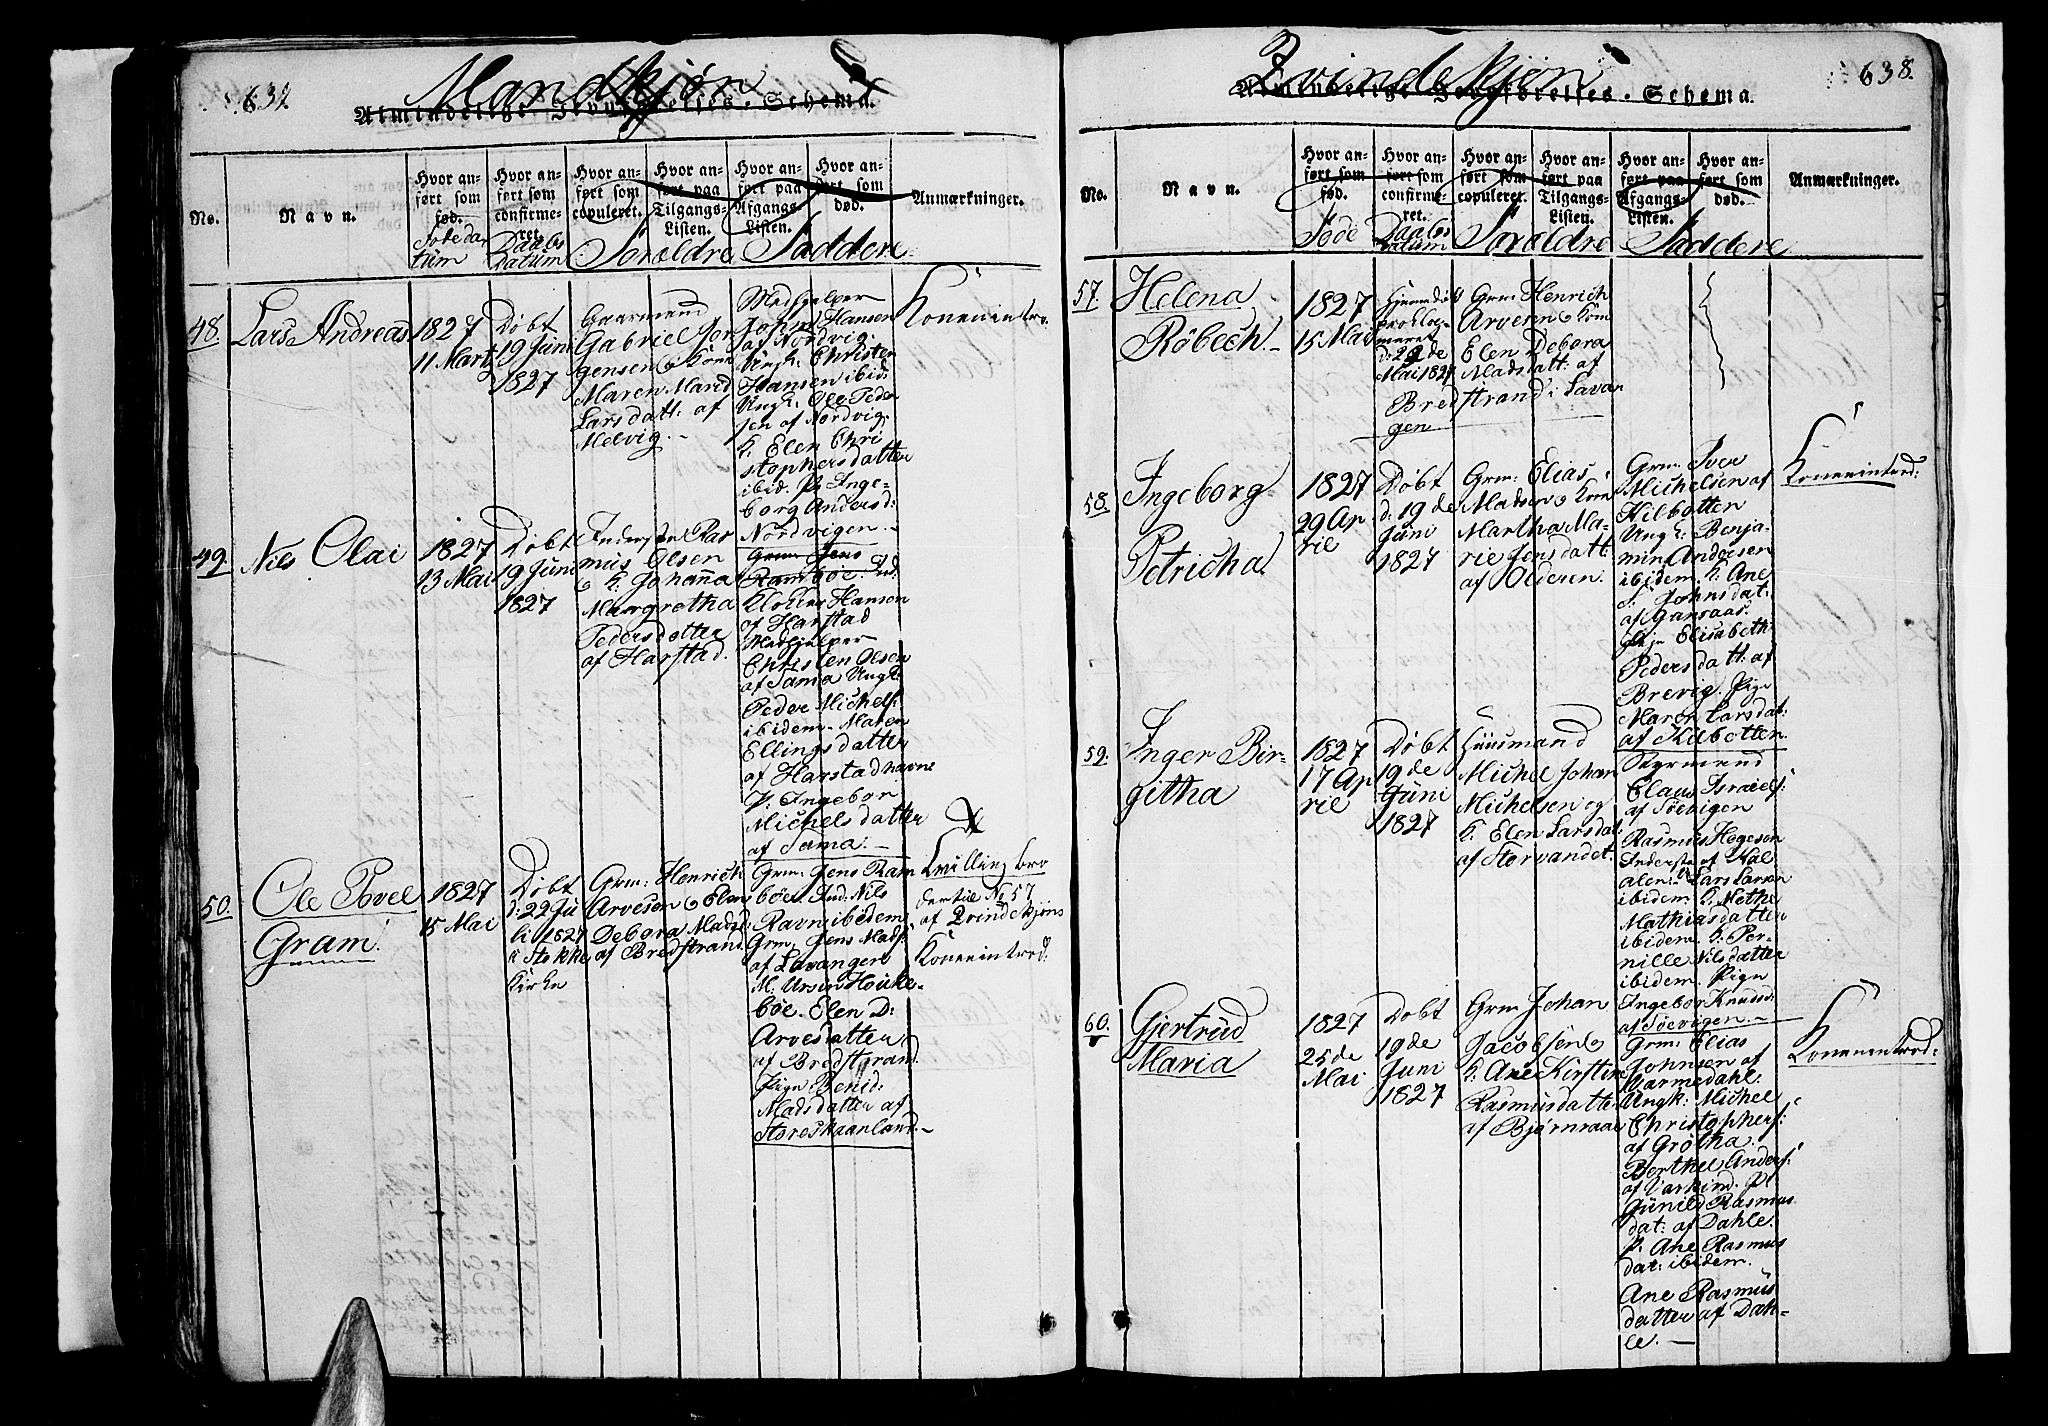 632
Mandkjøn
Almindeligt Jevnførelses-Schema.
No.
Navn.
Hvor an-
ført som
fød.
Fødeda
tum
Hvor an-
ført som
confirme-
ret.
Daabs
Datum
Hvor an-
ført som
copuleret.
Hvor an-
ført paa
Tilgangs-
Listen.
Forældre
Hvor an-
ført paa
Afgangs-
Listen.
Hvor an-
ført som
død.
Faddere
Anmærkninger.
48.
Lars Andreas
1827
11 Marts
Døbt
19 Juni
1827
Gaarmand
Gabriel Jor
gensen & Kone
Maren Marid
Larsdatt: af
Melvig.
Medhjelper
John Hansen
af Nordvig
Ungk: Christen
Hansen ibid:
Ungk: Ole Peder
sen af Nordvig
K. Elen Chri
stophersdatter
ibid. P. Inge-
borg Andersd:
Nordvigen.
Koneneintro.
49.
Nils Olai
1827
13 Mai
Døbt
19 Juni
1827
Inderst Ras
mus Olsen
& K. Johanna
Margretha
Pedersdatter
af Harstad.
Grm: Jens
Ramboe Ind:
Klokker Hanson
of Harstad
Medhjelper
Christen Olsen
af Sama Ungk:
Peder Michels:
ibidem. Maren
Ellingsdatter
af Harstadhavne
P. Ingebor
Michelsdatter
af Sama.
50.
Ole Povel
Gram.
1827
15 Mai
Døbt
d: 22 Ju
li 1827
i Stokke
Kirke
Grm: Henrich
Arvesen & Elen
Debora Madsd
af Bredstrand
Grm: Jens Ram
böe Ind: Nils
Ravn ibidem
Grm: Jens Mads:
af Lavangen
M: Ursin Houke-
böe. Elen D:
Arvesdatter
af Bredstrand
Pige Berid:
Madsdatter af
Storeskaanland.
Tvilling bro
der til No 57
af Qvindekjøns
Koneneintrod:
638.
Qvindekjøn
Almindeligt Jevnførelses-Schema.
No.
Navn.
Hvor an-
ført som
fød.
Føde
Hvor an-
ført som
confirme-
ret.
Daabs
Datum
Hvor an-
ført som
copuleret.
Hvor an-
ført paa
Tilgangs-
Listen.
Forældre
Hvor an-
ført paa
Afgangs-
Listen.
Hvor an-
ført som
død.
Faddere
Anmærkninger.
57.
Helena
Röbech.
1827
15 Mai
hjemmedøbt
d: 22 de
Mai 1827
Grm: Henrich
Arvesen & Kone
Elen Debora
Madsdatt: af
Bredstrand i Lavan
gen
58.
Ingeborg
Petricha
1827
29 Ap
ril
Døbt
d: 19 de
Juni
1827
Grm: Elias
Madsen & Kone
Martha Ma-
rie Jensdatt:
af Olderen.
Grm: Iver
Michelsen af
Kilbotten
Ungk: Benja-
min Andersen
ibidem. K. Ane
S: Johnsdat:
af Gansaas.
Elisabeth
Pedersdatt: af
Brevig. Pige
Maren Larsdat:
af Kilbotten
Koneneintrod:
59.
Inger Bir-
githa
1827
17 Ap
ril
Døbt
19 de
Juni
1827
Huusmand
Michel Johan
Michelsen og
K. Elen Larsdat
af Storvandet.
Styrmand
Claus Israels:
af Söevigen
Rasmus Hegesen
Inderst af Hal
alen. Lars Larsen
ibidem. K. Methe
Mathiasdatter
ibidem. K. Per-
nille Nilsdatter
ibidem. Pige
Ingebor Knudsd:
af Söevigen.
60.
Gjertrud
Maria
1827
25 de
Mai
Døbt
19 de
Juni
1827
Grm: Johan
Jacobsen &
K. Ane Kirstin
Rasmusdatter
af Bjørnraae
Grm: Elias
Johnsen af
Varmedahl:
Ungk: Michel
Christophers:
af Grøtha.
Berthel Anders:
P.
Gunild Rasmus
dat: af Dahle.
P. Ane Rasmus
dat: ibidem.
Ane Rasmus
datter af Dah-
le.
Koneneintrod: